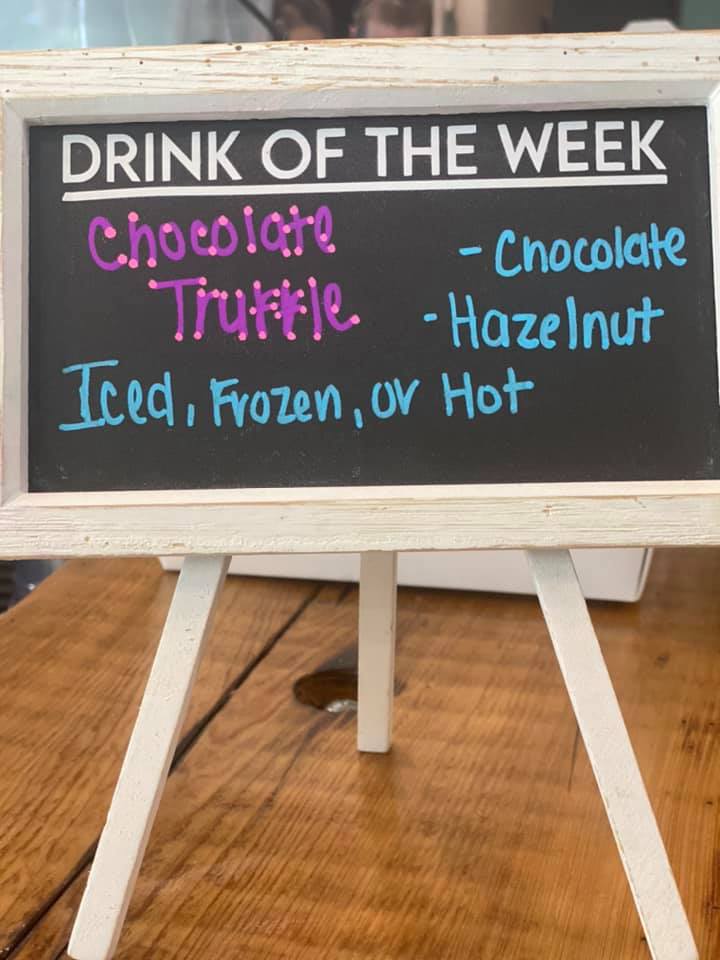 DRINK OF THE WEEK
Chocolate
Truffle
- Chocolate
- Hazelnut
Iced, Frozen, or Hot